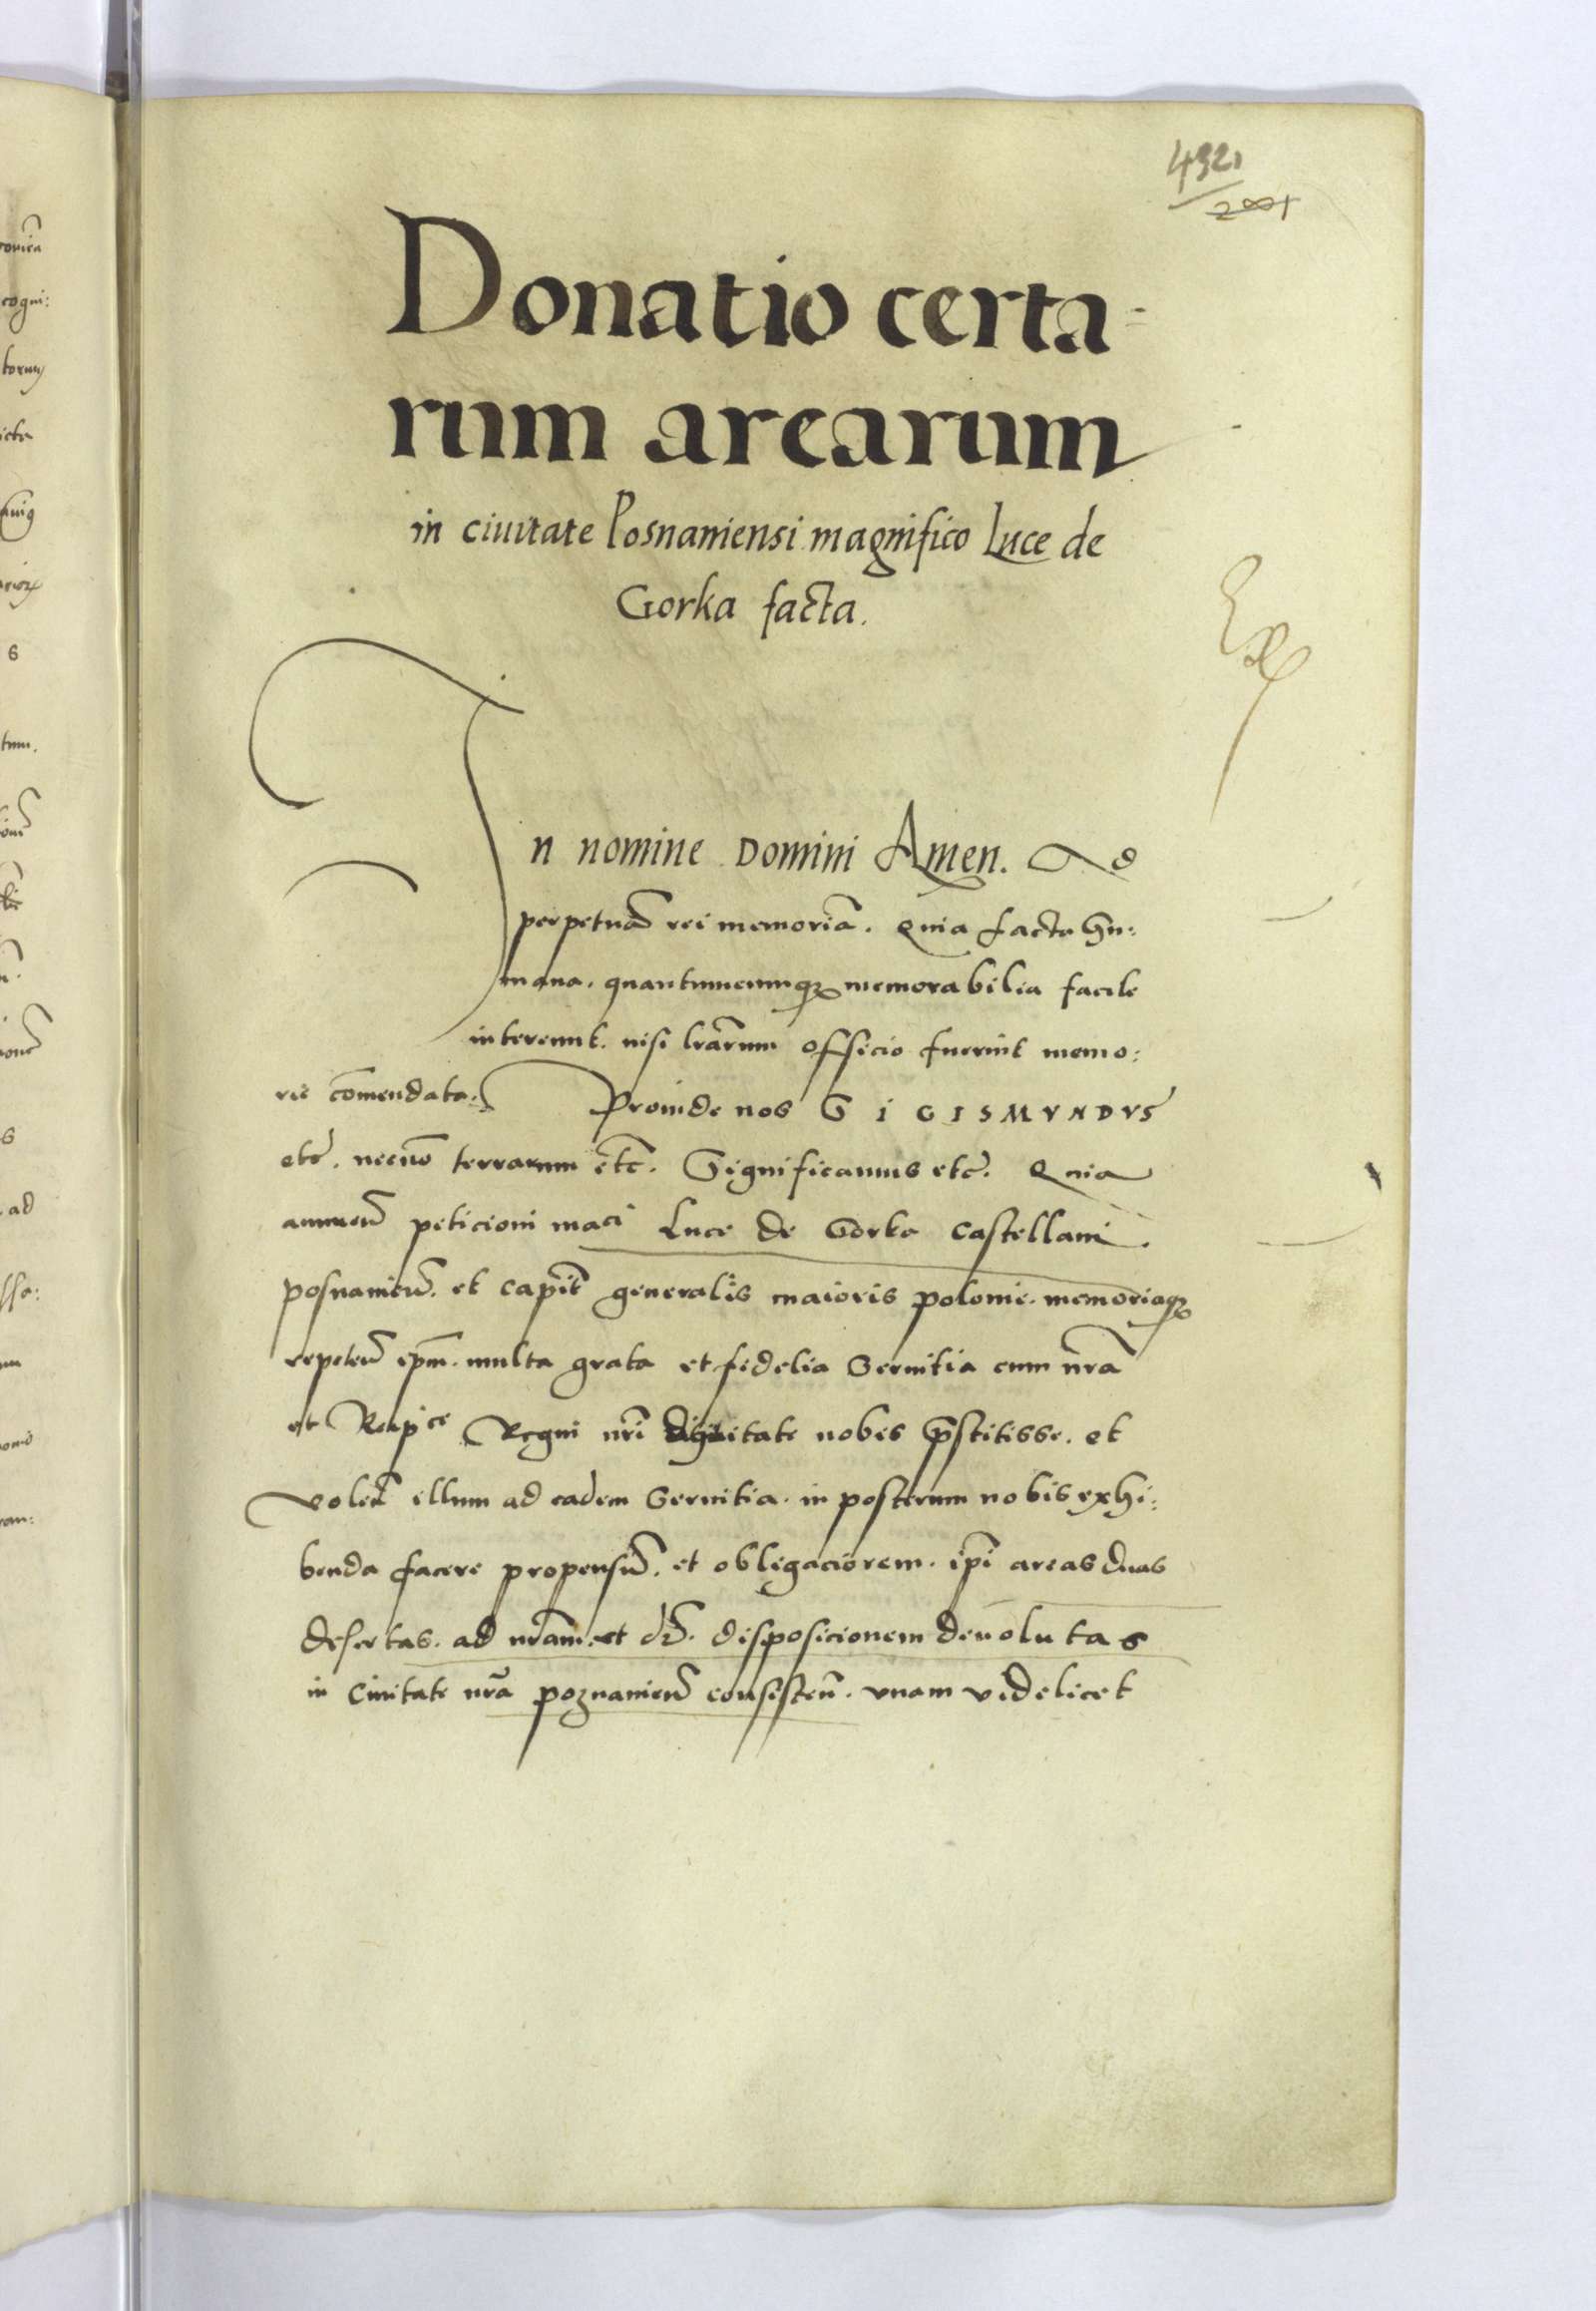 432
2001
Donatio certa-
rum arearum
in ciuitate Posnaniensi magnifico Luce de
Gorka facta.
In nomine Domini Amen. Ad
perpetuã rei memoriã. Quia facta hu:
mana. quantumcunqз memorabilia facile
intereunt. nisi lrãrum officio fuerint memo:
rie cõmendata. Proinde nos SIGISMVNDVS
etc̃. necnõ terrarum etc̃. Significamus etc̃. Quia
annuen̄ peticioni maci Luce de Gorka Castellani.
posnanien̄. et Capit̄ generalis maioris polonie. memoriaqз
repeten̄ ip̄m. multa grata et fidelia Seruitia cum nr̄a
et Reip̄ce Regni nr̄i dignitate nobis p̄stitisse. et
volen̄ illum ad eadem Seruitia. in posterum nobis exhi:
benda facere propensiū. et obligaciorem. ip̄i areas duas
desertas. ad nr̄am. et disposicionem deuolutas
in Ciuitate nr̄a poznanien̄ consisten̄. vnam videlicet